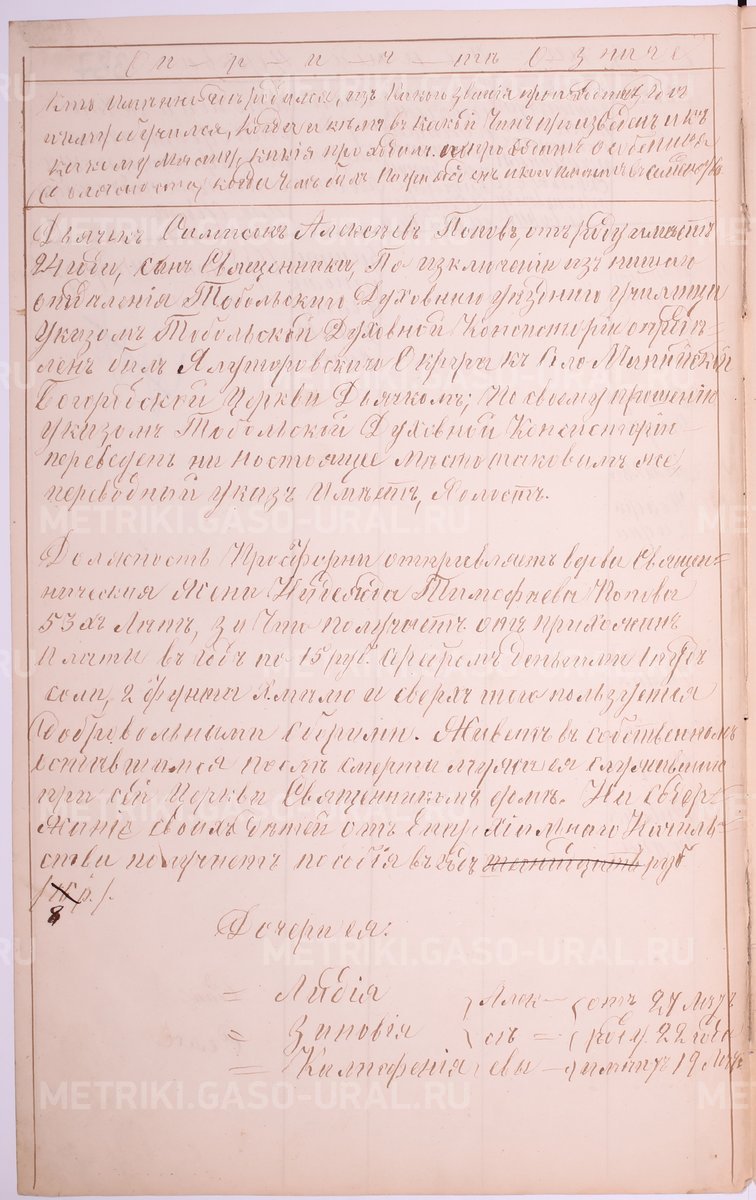 С п р а в к а о значе
Кто именно гдѣ родился, изъ какого званія происходитъ, гдѣ
и чему обучался, когда и кѣмъ въ какой чинъ произведенъ и къ
какому мѣсту, какія проходилъ
когда чѣмъ былъ награжденъ и кого имѣетъ въ семействѣ
Дьячекъ Симеонъ Алексѣевъ Поповъ, отъ роду имѣетъ
24 года, сынъ Священника, По изключеніи изъ низшаго
отдѣленія Тобольскаго Духовнаго уѣзднаго училища
Указомъ Тобольской Духовной Консисторіи опредѣ-
ленъ былъ Ялуторовскаго Округа къ
Богородской Церкви Дьячкомъ; По своему прошенію
указомъ Тобольской Духовной Консисторіи
переведенъ на настоящее мѣсто таковымъ же,
переводный указъ Имѣетъ, Холостъ.
Должность Просфорни отправляетъ вдова Священ-
ническая жена Надежда Тимофѣева Попова
53хъ лѣтъ, за что получаетъ отъ прихожанъ
платы въ годъ по 15 руб. серебромъ деньгами 1 пудъ
соли, 2 фунта хмѣлю и сверхъ того пользуется
добровольными сборами. Живетъ въ собственномъ
оставшемся послѣ смерти мужа ея служившаго
при сей Церкви Священникомъ домѣ. На содер-
жаніе своихъ дѣтей отъ Епархіальнаго Началь-
ства получаетъ пособія въ годъ руб
/10 р./.
8
Дочери ея:
= Лидія } Алек- { отъ 27 лѣтъ
= Зиновія } сѣ = { роду 22 года
= Калисфенія } евы - { имѣютъ 19 лѣтъ
METRIKI.GASO-URAL.RU